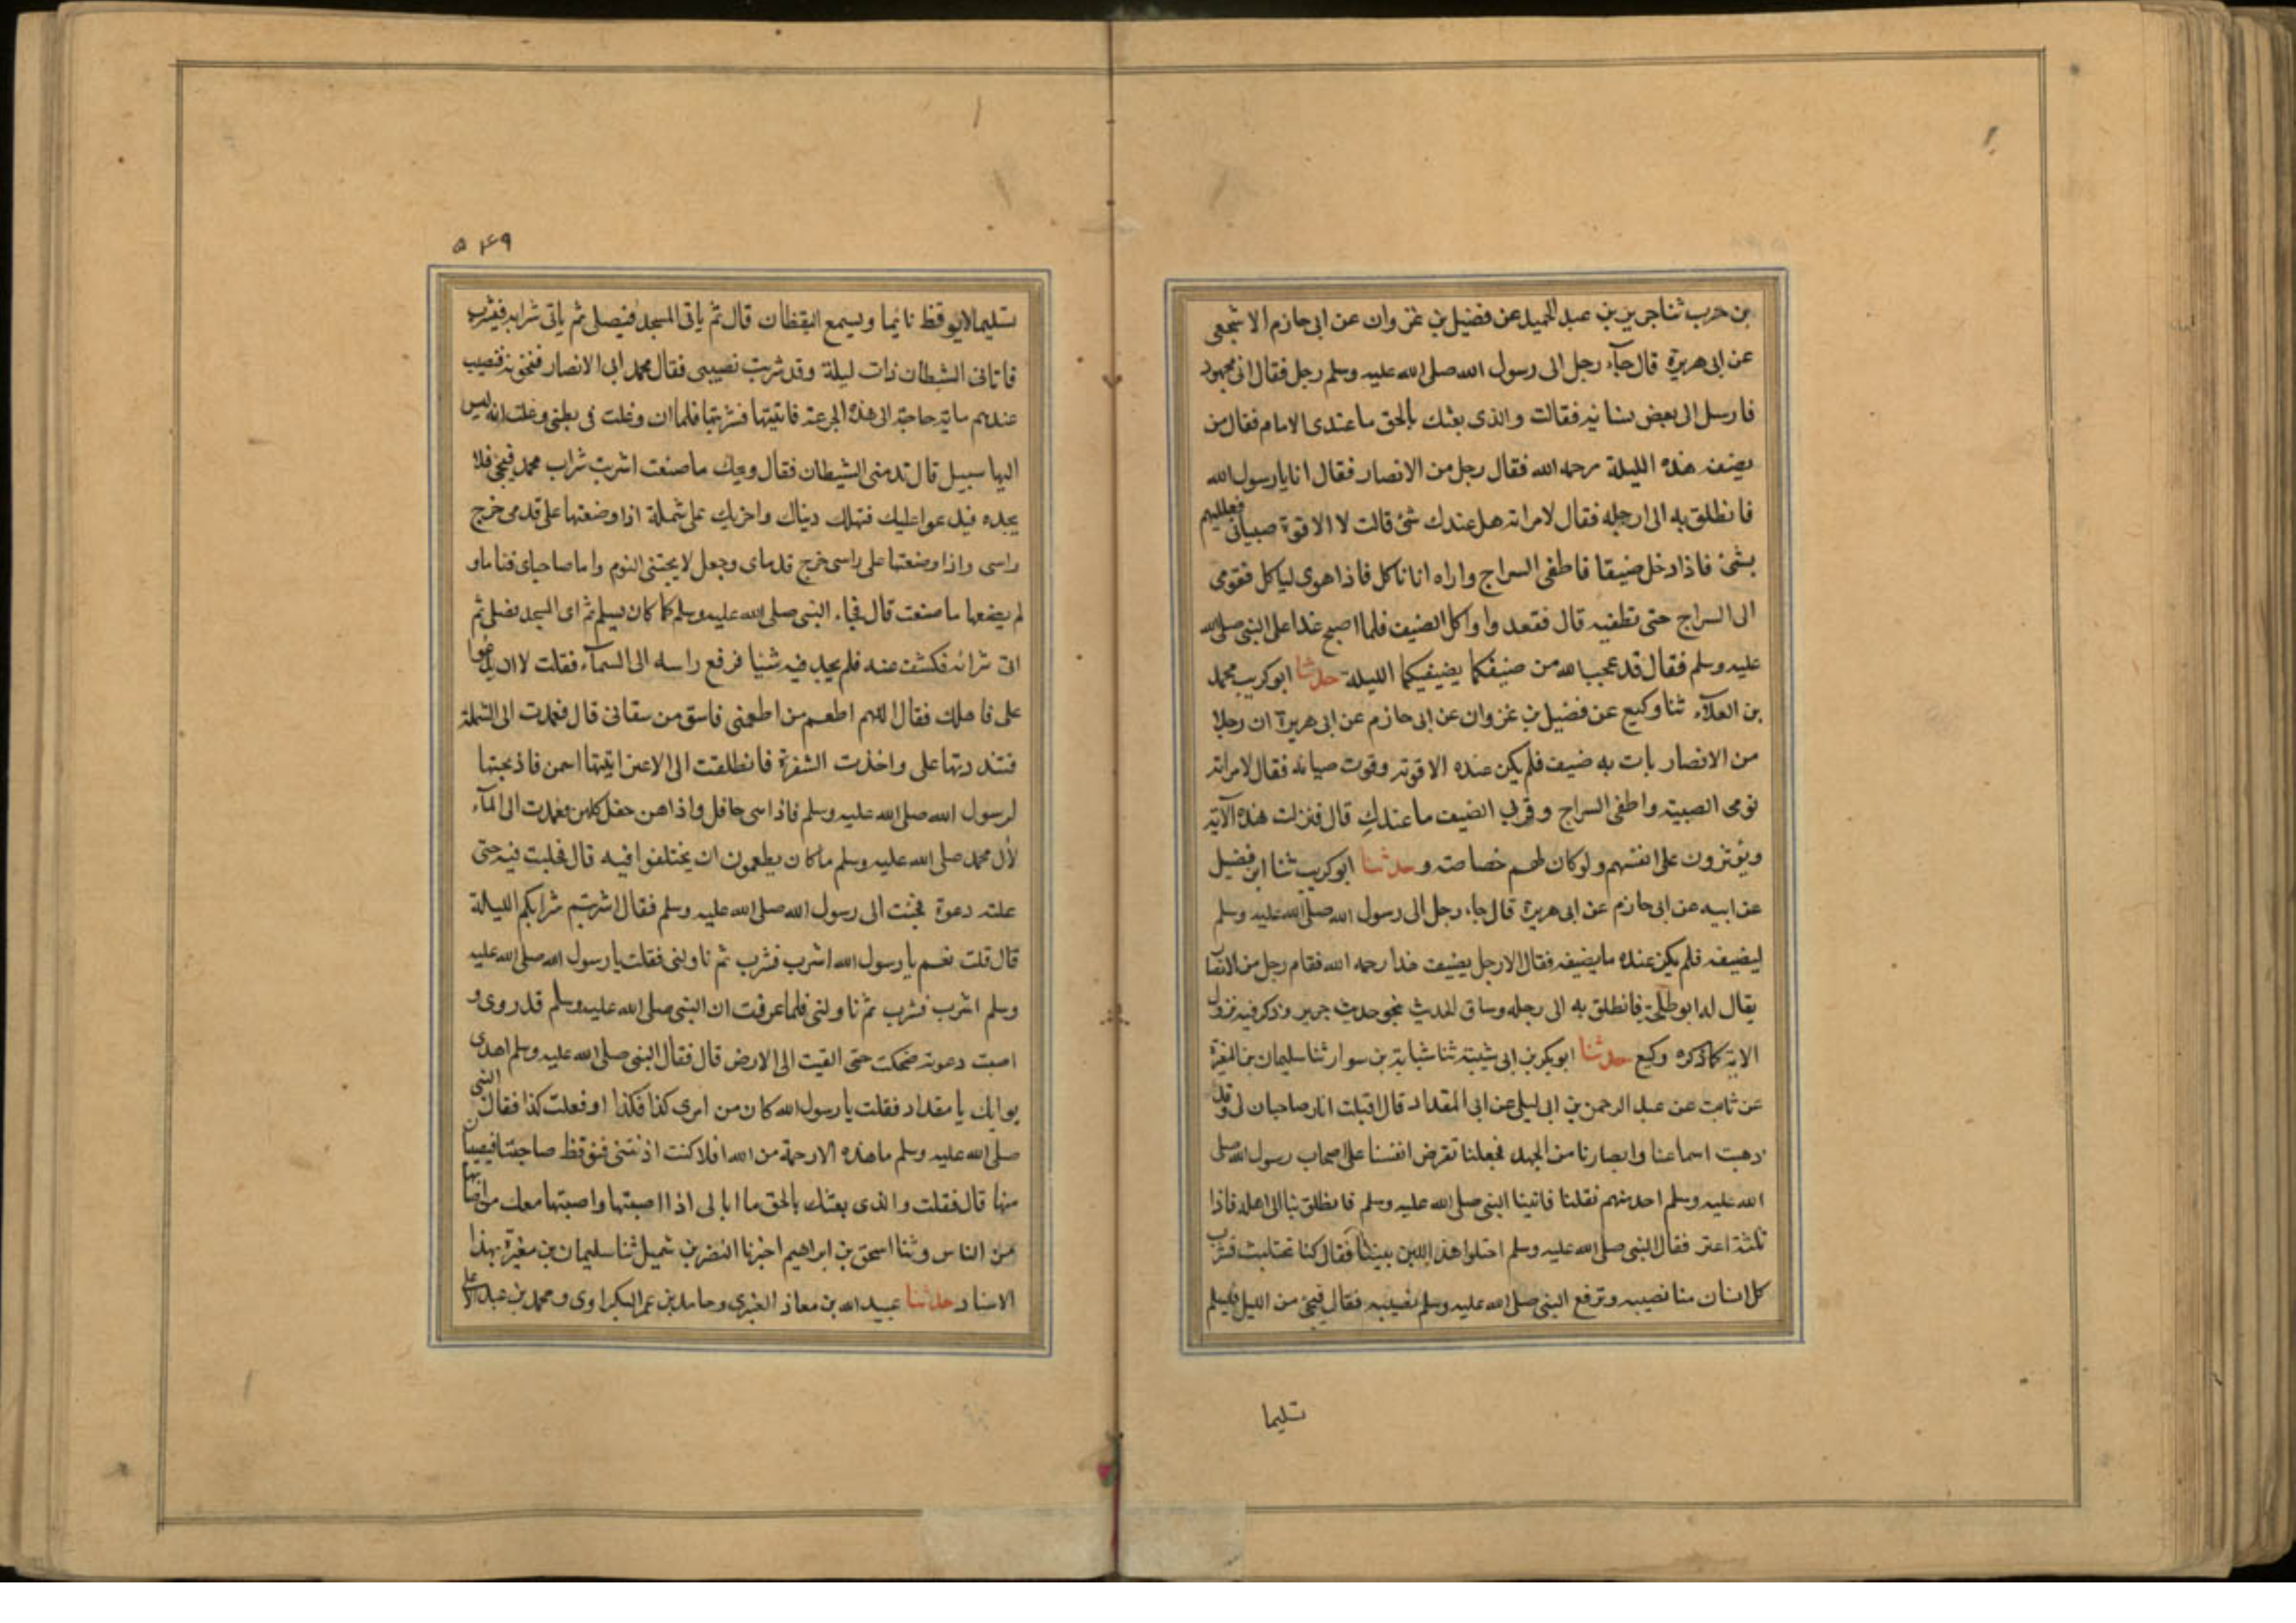 بن حرب ثنا جرير بن عبد الحميد عن فضيل بن غزوان عن ابي حازم الاشجعي
عن ابي هريرة قال جآء رجل الى رسول الله صلى الله عليه وسلم رجل فقال اني مجهود
فارسل الى بعض نسائه فقالت والذي بعثك بالحق ما عندي الا ماء فقال من
يضيف هذه الليلة رحمه الله فقال رجل من الانصار فقال انا يا رسول الله
فانطلق به الى ارحله فقال لامراته هل عندك شئ قالت لا الا قوة صبياني فعلليهم
بشئ فاذا دخل ضيفا فاطفى السراج واراه انا ناكل فاذا هوى لياكل فقومى
الى السراج حتى تطفيه قال فقعد وا واكل الضيف فلما اصبح غدا على النبي صلى الله
عليه وسلم فقال قد عجب الله من صنيفكما يضيفيكما الليلة حدثنا ابو كريب محمد
بن العلآء ثنا وكيع عن فضيل بن غزوان عن ابي حازم عن ابي هريرة ان رجلا
من الانصار بات به ضيف فلم يكن عنده الا قوته وقوت صيانه فقال لامراته
نومى الصبية واطفى السراج وقربي الضيف ما عندكِ قال فنزلت هذه الآية
ويؤثرون على انفسهم ولو كان لهم خصاصة وحدثنا ابو كريب ثنا ابن فضيل
عن ابيه عن ابي حازم عن ابي هريرة قال جاء رجل الى رسول الله صلى الله عليه وسلم
ليضيفه فلم يكن عنده ما يضيفه فقال الا رجل يضيف هذا رحمه الله فقام رجل من الانصار
يقال له ابو طلحة فانطلق به الى رحله وساق الحديث بنحو حديث جرير وذكر فيه نزول
الاية كما ذكره وكيع حدثنا ابو بكر بن ابي شيبة ثنا شبابة بن سوار ثنا سليمان بن المغيرة
عن ثابت عن عبد الرحمن بن ابي ليلى عن ابي المقداد قال اقبلت انا وصاحبان لي وقد
ذهبت اسماعنا وابصارنا من الجهد فجعلنا نعرض انفسنا على اصحاب رسول الله صلى
الله عليه وسلم احد منهم نقلنا فاتينا النبي صلى الله عليه وسلم فانطلق بنا الى اهله فاذا
ثلثة اعنز فقال النبي صلى الله عليه وسلم احتلوا هذا اللبن بيننا فقال كنا نحتلبت فشرب
كل انسان منا نصيبه وترفع النبي صلى الله عليه وسلم نصيبه فقال فيجئ من الليل فيسلم
تسليما
٥٤٩
تسليما لا يوقظ نائما ويسمع اليقظان قال ثم ياتى المسجد فيصلى ثم ياتى شرابه فيشرب
فاتانى الشيطان ذات ليلة وقد شربت نصيبى فقال محمد ابي الانصار فنحقونه فنصيب
عندهم ما به حاجة الى هذه الجرعة فاتيتها فشربتها فلما ان وغلت فى بطنى وعلت انه ليس
اليها سبيل قال تدمنى الشيطان فقال ويحك ما صنعت اشربت شراب محمد فيجئ فلا
يجده فيدعوا عليك فتهلك دنياك واخريك على شملة اذا وضعتها على قدمى خرج
راسى واذا وضعتها على راسى خرج قدماى وجعل لا يجتنى النوم واما صاحباى فناما و
لم يضعها ما صنعت قال فجاء النبي صلى الله عليه وسلم كما كان يسلم ثم اى المسجد فصلى ثم
اتى شرابه فكشف عنه فلم يجد فيه شيئا فرفع راسه الى السمآء فقلت لا ان يدعوا
على فاهلك فقال اللهم اطعم من اطعمنى فاسق من سقانى قال فعمدت الى الشملة
فشددتها على واخذت الشفرة فانطلقت الى الاعنز ايتها اسمن فاذبحتها
لرسول الله صلى الله عليه وسلم فاذا هى حافل واذا هن حفل كلهن فعمدت الى المآء
لأل محمد صلى الله عليه وسلم ما كان يطعمون ان يختلفوا فيه قال فحلبت فيه حتى
علته دعوة فجئت الى رسول الله صلى الله عليه وسلم فقال اشربتم شرابكم الليلة
قال قلت نعم يا رسول الله اشرب فشرب ثم ناولنى فقلت يا رسول الله صلى الله عليه
وسلم اشرب فشرب ثم ناولنى فلما عرفت ان النبي صلى الله عليه وسلم قد روى و
اصبت دعوته ضحكت حتى القيت الى الارض قال فقال النبي صلى الله عليه وسلم اهدى
يوايك يا مقداد فقلت يا رسول الله كان من امرى كذا فكذا او فعلت كذا فقال النبي
صلى الله عليه وسلم ما هذه الا رحمة من الله افلا كنت اذنتنى فنوقظ صاحبنا فيصيبان
منها قال فقلت والذى بعثك بالحق ما ابالى اذا اصبتها واصبتها معك من اصابها
من الناس وثنا اسحق بن ابراهيم اخبرنا النضر بن شميل ثنا سليمان بن مغيرة بهذا
الاسناد حدثنا عبيد الله بن معاذ العنبري وحامد بن عمر البكراوى ومحمد بن عبد الاعلى